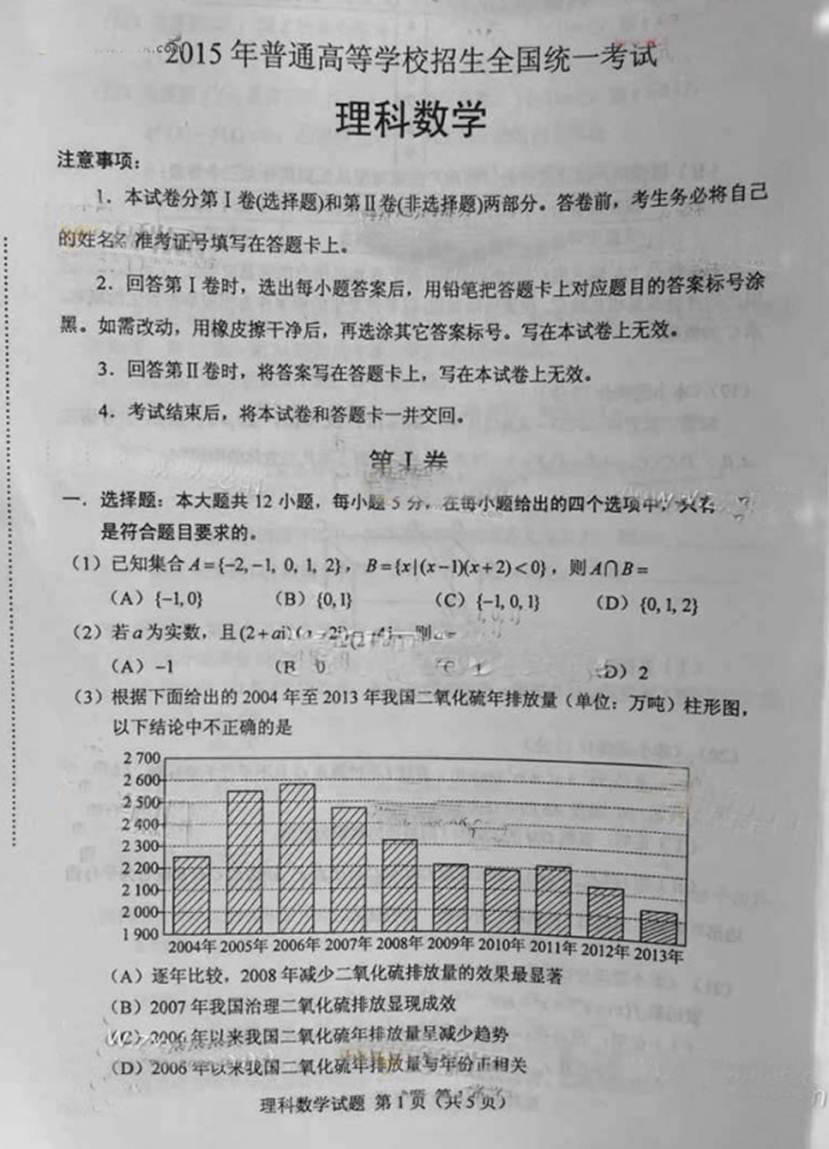 2015 年普通高等学校招生全国统一考试
理科数学
注意事项：
1．本试卷分第Ⅰ卷(选择题)和第Ⅱ卷(非选择题)两部分。答卷前，考生务必将自己
的姓名、准考证号填写在答题卡上。
2．回答第Ⅰ卷时，选出每小题答案后，用铅笔把答题卡上对应题目的答案标号涂
黑。如需改动，用橡皮擦干净后，再选涂其它答案标号。写在本试卷上无效。
3．回答第Ⅱ卷时，将答案写在答题卡上，写在本试卷上无效。
4．考试结束后，将本试卷和答题卡一并交回。
第Ⅰ卷
一．选择题：本大题共 12 小题，每小题 5 分，在每小题给出的四个选项中，只有
是符合题目要求的。
（1）已知集合 A={-2,-1, 0, 1, 2}，B={x|(x-1)(x+2)<0}，则 A∩B=
（A）{-1,0} （B）{0,1} （C）{-1,0,1} （D）{0,1,2}
（2）若 a 为实数，且(2+ai) 则
（A）-1 （B）0 （D）2
（3）根据下面给出的 2004 年至 2013 年我国二氧化硫年排放量（单位：万吨）柱形图，
以下结论中不正确的是
2 700
2 600
2 500
2 400
2 300
2 200
2 100
2 000
1 900
2004年 2005年 2006年 2007年 2008年 2009年 2010年 2011年 2012年 2013年
（A）逐年比较，2008 年减少二氧化硫排放量的效果最显著
（B）2007 年我国治理二氧化硫排放显现成效
（C）2006 年以来我国二氧化硫年排放量呈减少趋势
（D）2006 年以来我国二氧化硫年排放量与年份正相关
理科数学试题 第 1 页（共 5 页）